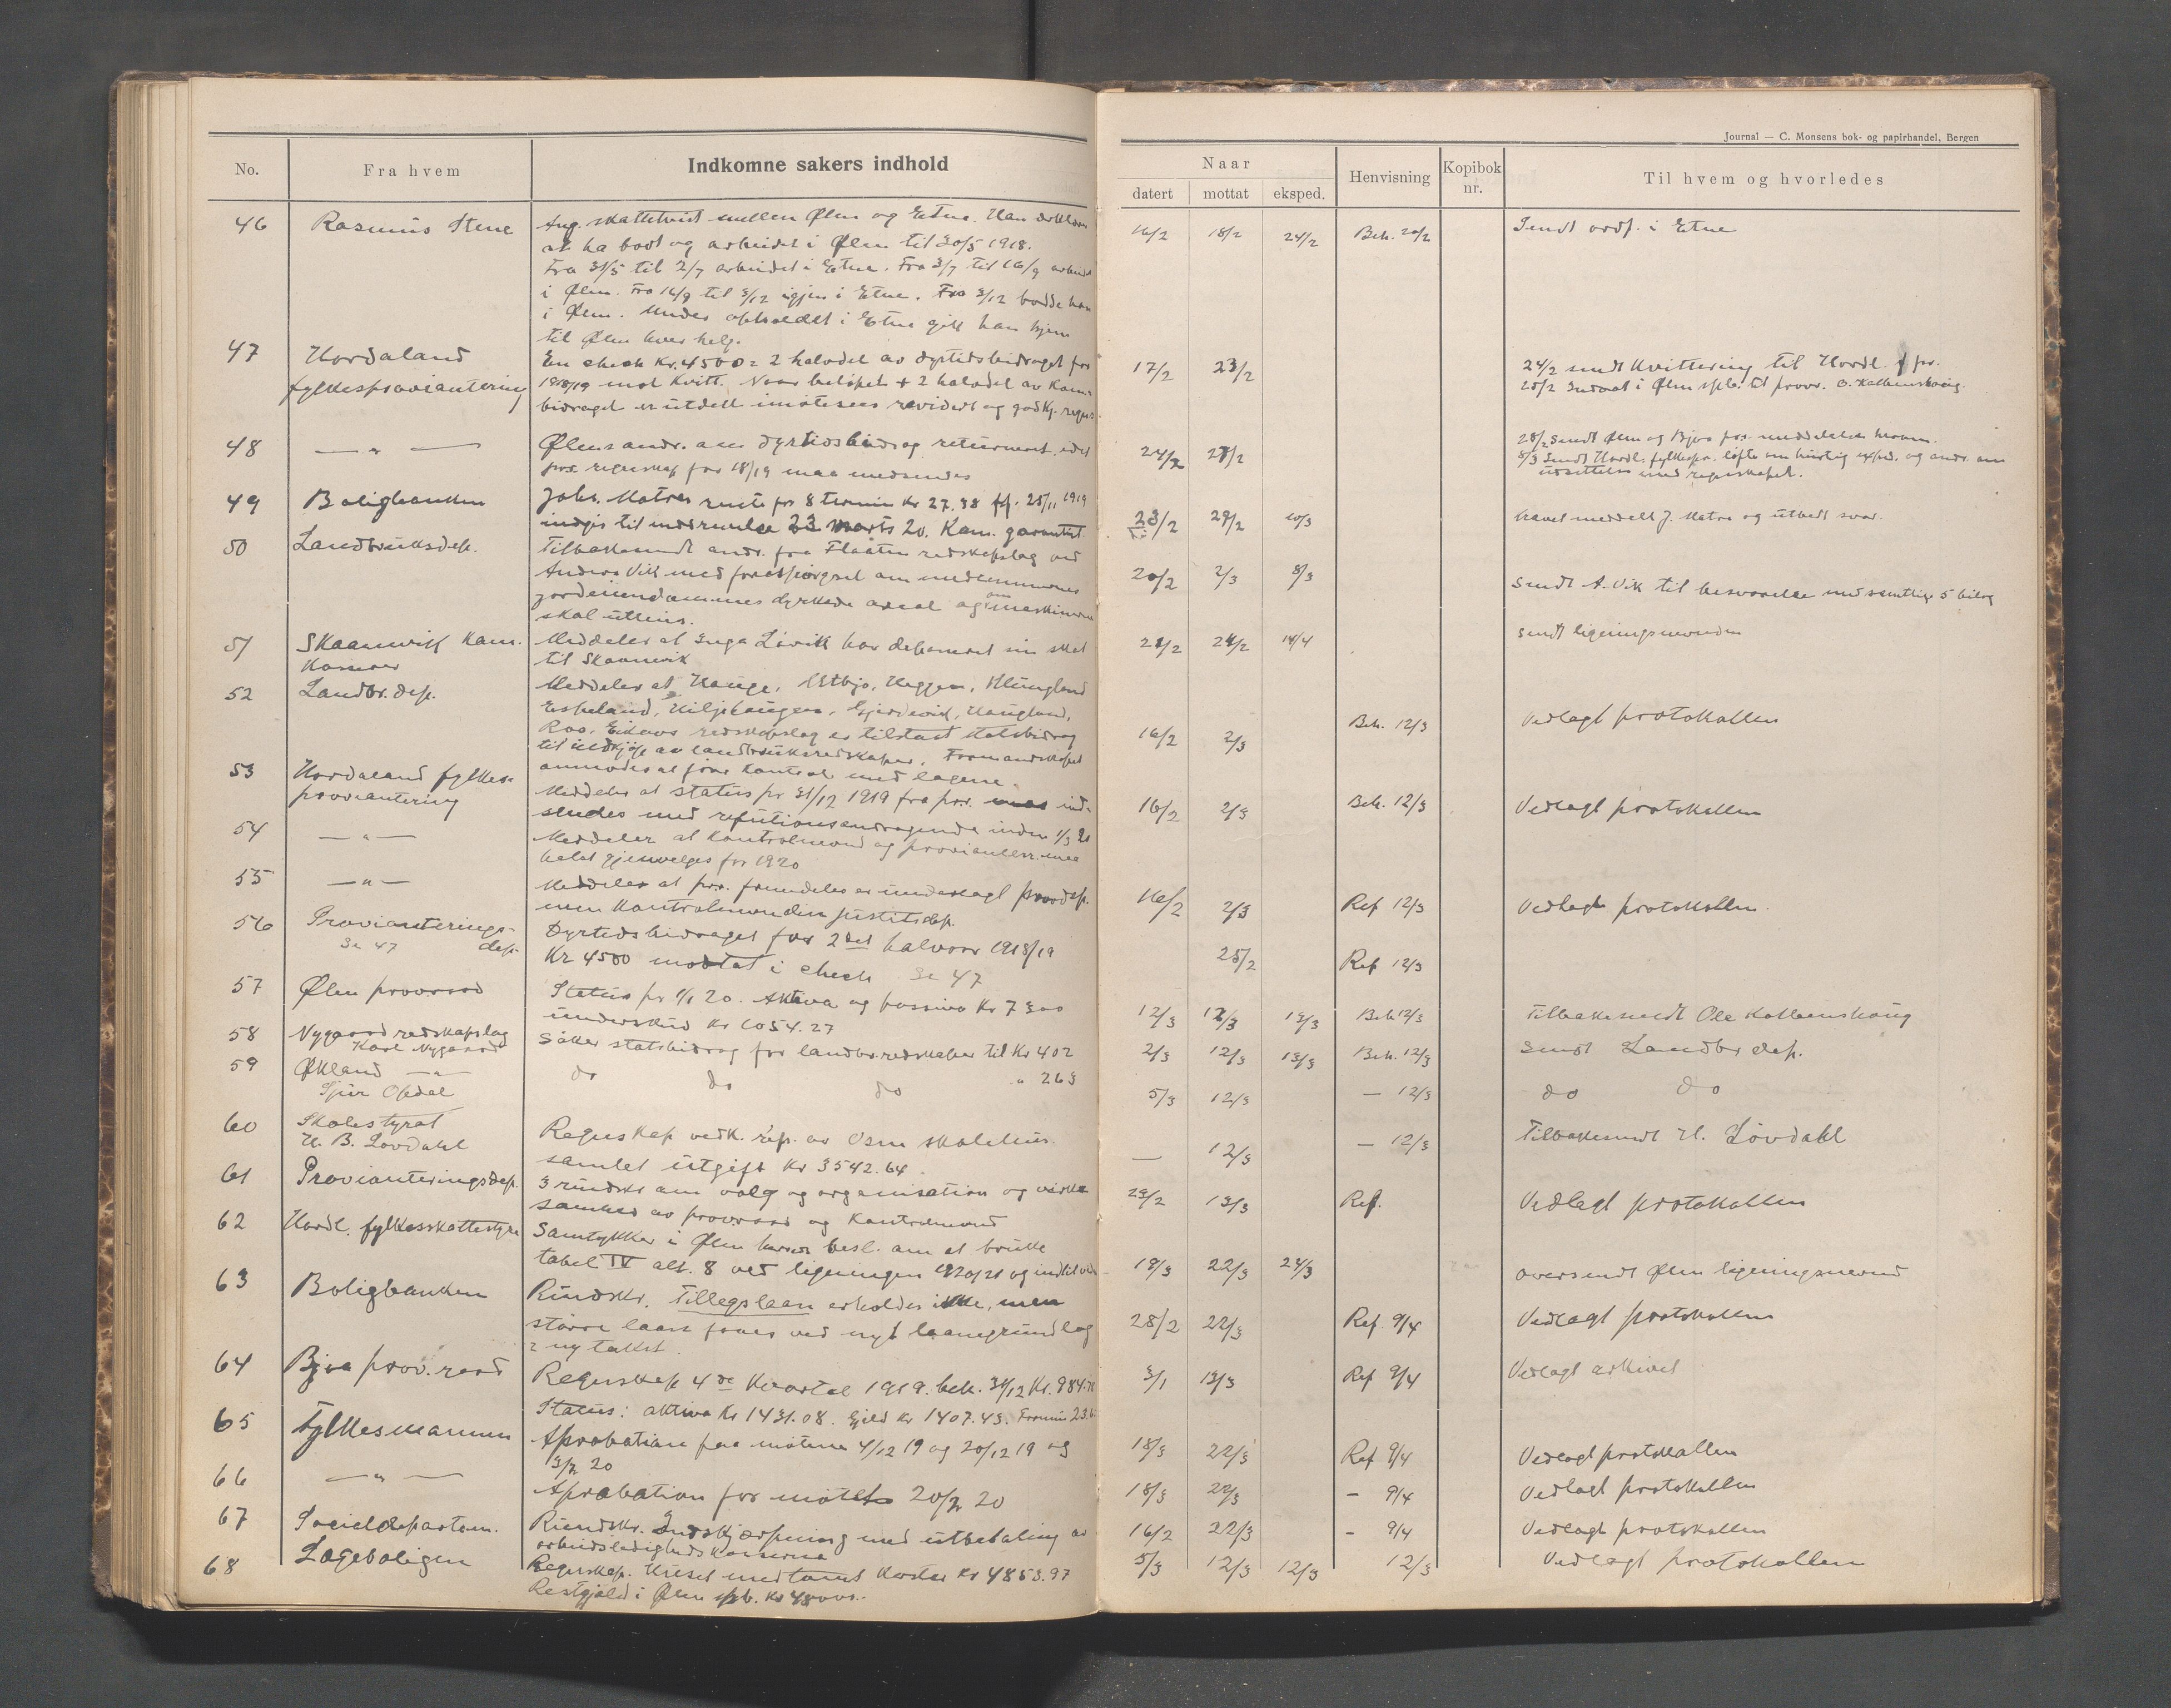 Journal — C. Monsens bok- og papirhandel, Bergen
No. Fra hvem Indkomne sakers indhold
Naar Henvisning Kopibok nr. Til hvem og hvorledes
datert mottat eksped.
46 Rasmus Stene Ang. skattetvist mellem Ølen og Etne. Han erklærer
at ha bodt og arbeidet i Ølen til 30/5 1918.
Fra 31/5 til 2/7 arbeidet i Etne. Fra 3/7 til 16/9 arbeidet
i Ølen. Fra 16/9 til 3/12 igjen i Etne. Fra 3/12 bodde han
i Ølen. Under opholdet i Etne gik han hjem
til Ølen hver helg.
16/2 18/2 24/2 Beh. 20/2 Sendt ordf. i Etne
47 Hordaland fylkesproviantering En check Kr. 4500 = 2 halvdel av dyrtidsbidraget for
1918/19 mot kvitt. Naar beløpet + 2 halvdel av kom.
bidraget er utdelt imøtesees revidert og godkj. regnsk.
17/2 23/2 24/2 sendt kvittering til Hordl. f. pr.
25/2 Indsat i Ølen spb. til provr. O. Kalbenshaug.
48 — " — Ølens andr. om dyrtidsbidrag returneret, idet
prov. regnskap for 18/19 maa medsendes
24/2 28/2 28/2 Sendt Ølen og Bjoa pr. meddelelse herom.
8/3 Sendt Hordl. fylkespr. løfte om hurtig exped. og andr. om
utsettelse med regnskapet.
49 Boligbanken Johs. Matres rente for 8 termin kr 27.38 pf. 25/11 1919
indgis til inddrivelse 23 marts 20. Kom. garantist
23/2 29/2 20/3 Kravet meddelt J. Matre og utbedt svar.
50 Landbruksdep. Tilbakesendt andr. fra Flaaten redskapslag ved
Anders Vik med forespørgsel om medlemmernes
jordeiendommes dyrkede areal og om maskinerne
skal utleies.
20/2 2/3 8/3 Sendt A. Vik til besvarelse med samtlige 5 bilag
51 Skaanevik kom. kasserer Meddeler at Inga Løvik har deponeret sin skat
til Skaanevik
21/2 24/2 14/4 Sendt ligningsnevnden
52 Landbr. dep. Meddeler at Hauge, Utbjo, Heggen,
Espeland, Kiljehaugen, Gjerdevik, Haugland,
Roo, redskapslag er tilstaat statsbidrag
til indkjøp av landbruksredskaper. Formandskapet
anmodes at føre kontrol med lagene.
16/2 2/3 Beh. 12/3 Vedlagt protokollen
53 Hordaland fylkesproviantering Meddeler at status pr 31/12 1919 fra prr. ind-
sendes med refusionsandragende inden 1/3 20
16/2 2/3 Beh. 12/3 Vedlagt protokollen
54 — " — Meddeler at kontrolnevnd og proviantersr. maa
helst gjenvelges for 1920
55 — " — Meddeler at prr. fremdeles er underlagt provdep.
men kontrolnevnden justitsdep.
16/2 2/3 Ref 12/3 Vedlagt protokollen
56 Provianteringsdep. Se 47 Dyrtidsbidraget for 2det halvaar 1918/19
Kr 4500 mottat i check Se 47
25/2 Ref 12/3
57 Ølen provraad Status pr 1/1 20. Aktiva og passiva Kr 7300
underskud Kr 1054.27
12/3 12/3 13/3 Beh 12/3 Tilbakesendt Ole Kalbenshaug
58 Nygaard redskapslag Karl Nygaard Søker statsbidrag for landbr.redskaper til Kr 402
2/3 12/3 13/3 Beh. 12/3 Sendt Landbr dep.
59 Økland — " — Sjur Opdal do do do " 263
5/3 12/3 — 12/3 do do
60 Skolestyret H. B. Løvdahl Regnskap vedk. rep. av Osen skolehus.
samlet utgift Kr 3542.64.
— 12/3 — 12/3 Tilbakesendt H. Løvdahl
61 Provianteringsdep. 3 rundskr om valg og organisation og virke-
samhed av provraad og kontrolnevnd
23/2 13/3 Ref. Vedlagt protokollen
62 Hordl. fylkesskattestyre Samtykker i Ølen herreds besl. om at bruke
tabel IV alt. 8 ved ligningen 1920/21 og indtil videre
19/3 22/3 24/3 Oversendt Ølen ligningsnevnd
63 Boligbanken Rundskr. Tillegslaan erholdes ikke, men
større laan faaes ved nyt laanegrundlag
= ny takst.
28/2 22/3 Ref. 9/4 Vedlagt protokollen
64 Bjoa prov.raad Regnskap 4de kvartal 1919. beh. 31/12 Kr. 984.
Status: aktiva Kr 1431.08. Gjeld Kr 1407.43. Formue 23.65
3/1 13/3 Ref 9/4 Vedlagt arkivet
65 Fylkesmannen Aprobation paa møtene 4/12 19 og 20/12 19 og
3/2 20
18/3 22/3 Ref 9/4 Vedlagt protokollen
66 — " — Aprobation for møtet 20/2 20
18/3 22/3 — 9/4 Vedlagt protokollen
67 Socialdepartem. Rundskr. Indskjærpning med utbetaling av
arbeidsledighedskasserne
16/2 22/3 — 9/4 Vedlagt protokollen
68 Lægeboligen Regnskap. Huset med tomt koster Kr 4853.97
Restgjæld i Ølen spb. Kr
5/3 12/3 12/3 12/3 Vedlagt protokollen